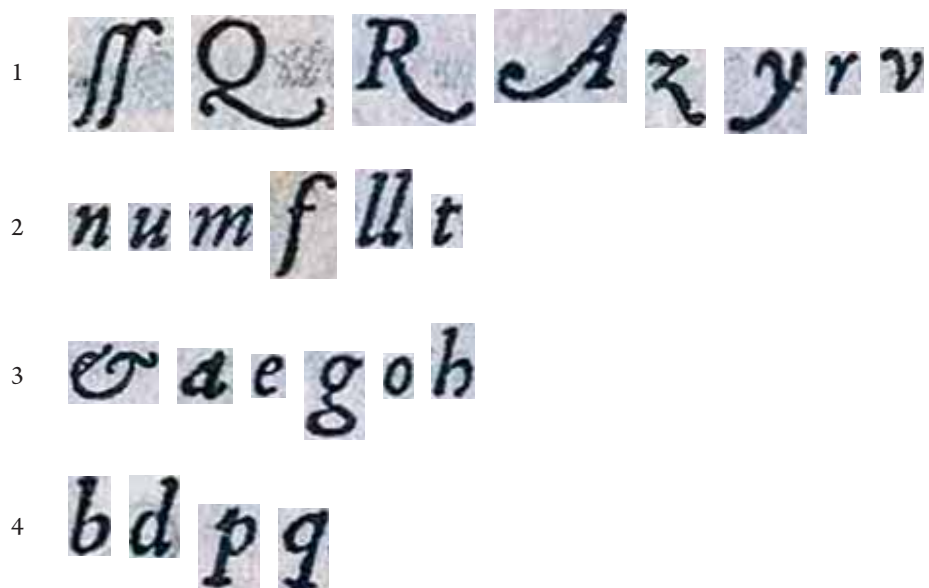 1 ſſ Q R A z y r v
2 n u m f ll t
3 & a e g o h
4 b d p q